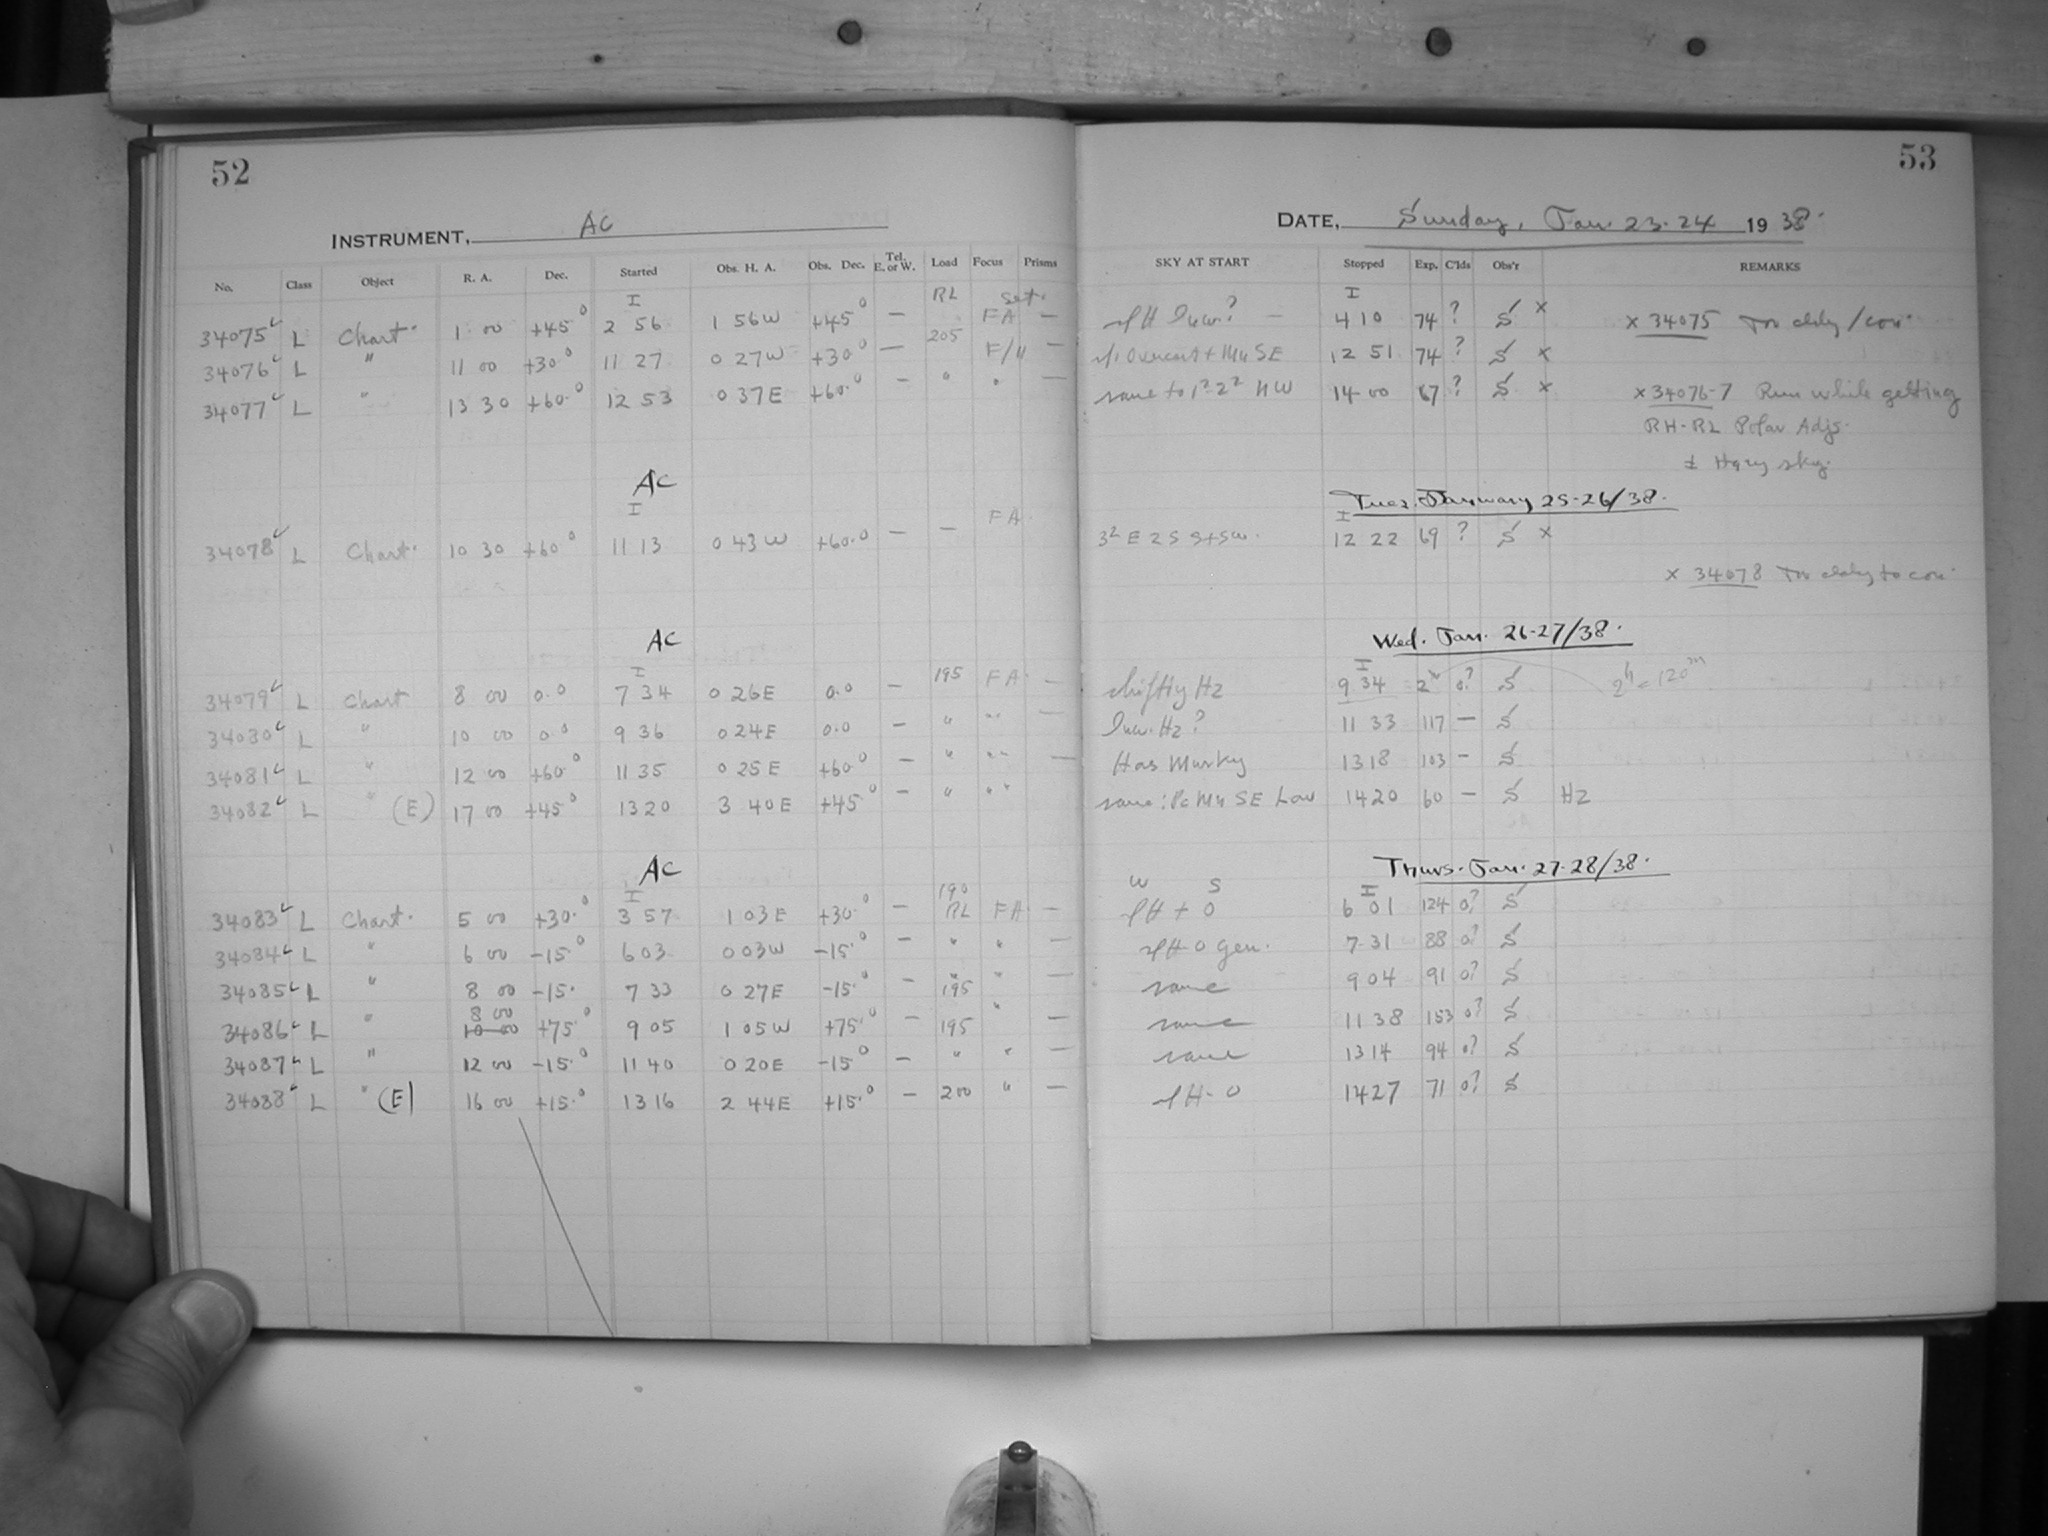 52
INSTRUMENT, AC
No. Class Object R. A. Dec. Started Obs. H. A. Obs. Dec. Tel. E. or W. Load Focus Prisms
I RL Set.
34075 L Chart. 1 00 +45° 2 56 1 56W +45° — 205 FA —
34076 L " 11 00 +30° 11 27 0 27W +30° — F/4 —
34077 L " 13 30 +60.° 12 53 0 37E +60.° — " " —
AC
I FA.
34078 L Chart. 10 30 +60° 11 13 0 43W +60.0 — —
AC
I
34079 L Chart 8 00 0.0 7 34 0 26E 0.0 — 195 FA. —
34080 L " 10 00 0.0 9 36 0 24E 0.0 — " " —
34081 L " 12 00 +60.° 11 35 0 25E +60.° — " " —
34082 L " (E) 17 00 +45° 13 20 3 40E +45° — " "
AC
I 190
34083 L Chart. 5 00 +30.° 3 57 1 03E +30° — RL FA. —
34084 L " 6 00 -15.° 6 03 0 03W -15.° — " " —
34085 L " 8 00 -15. 7 33 0 27E -15.° — " " —
195
8 00
34086 L " 10 00 +75.° 9 05 1 05W +75.° — 195 " —
34087 L " 12 00 -15.° 11 40 0 20E -15° — " " —
34088 L " (E) 16 00 +15.° 13 16 2 44E +15.° — 200 " —
53
DATE, Sunday, Jan. 23-24 1938.
SKY AT START Stopped Exp. C'lds Obs'r REMARKS
I
4 10 74 ? S x x 34075
Overcast + SE 12 51 74 ? S x
same to NW 14 00 67 ? S x x 34076-7 Run while getting
RH-RL Polar Adjs.
± Hazy sky.
Tues. January 25-26/38.
I
3² E 2 S S+SW. 12 22 69 ? S x
x 34078
Wed. Jan. 26-27/38.
I
Hz 9 34 2ʰ 0? S 2ʰ = 120ᵐ
Hz? 11 33 117 — S
Has Murky 13 18 103 — S
same: SE Low 14 20 60 — S Hz
Thurs. Jan. 27-28/38.
W S I
H + 0 6 01 124 0? S
H 0 gen. 7 31 88 0? S
same 9 04 91 0? S
same 11 38 153 0? S
same 13 14 94 0? S
H-0 14 27 71 0? S